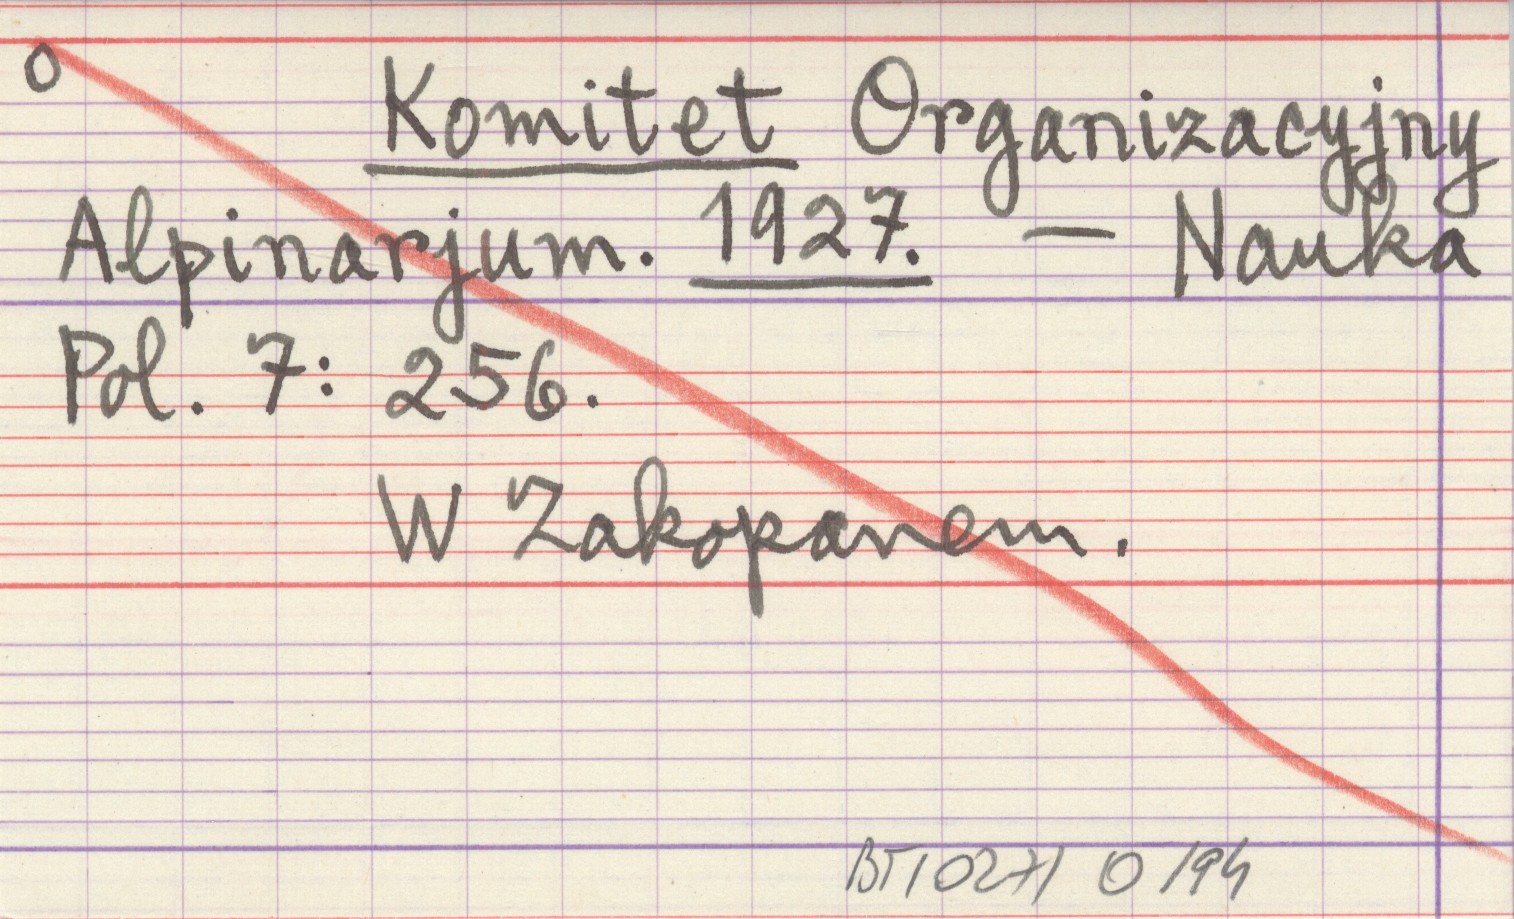 O
Komitet Organizacyjny
Alpinarjum. 1927. — Nauka
Pol. 7: 256.
W Zakopanem.
BT/0271 0/94